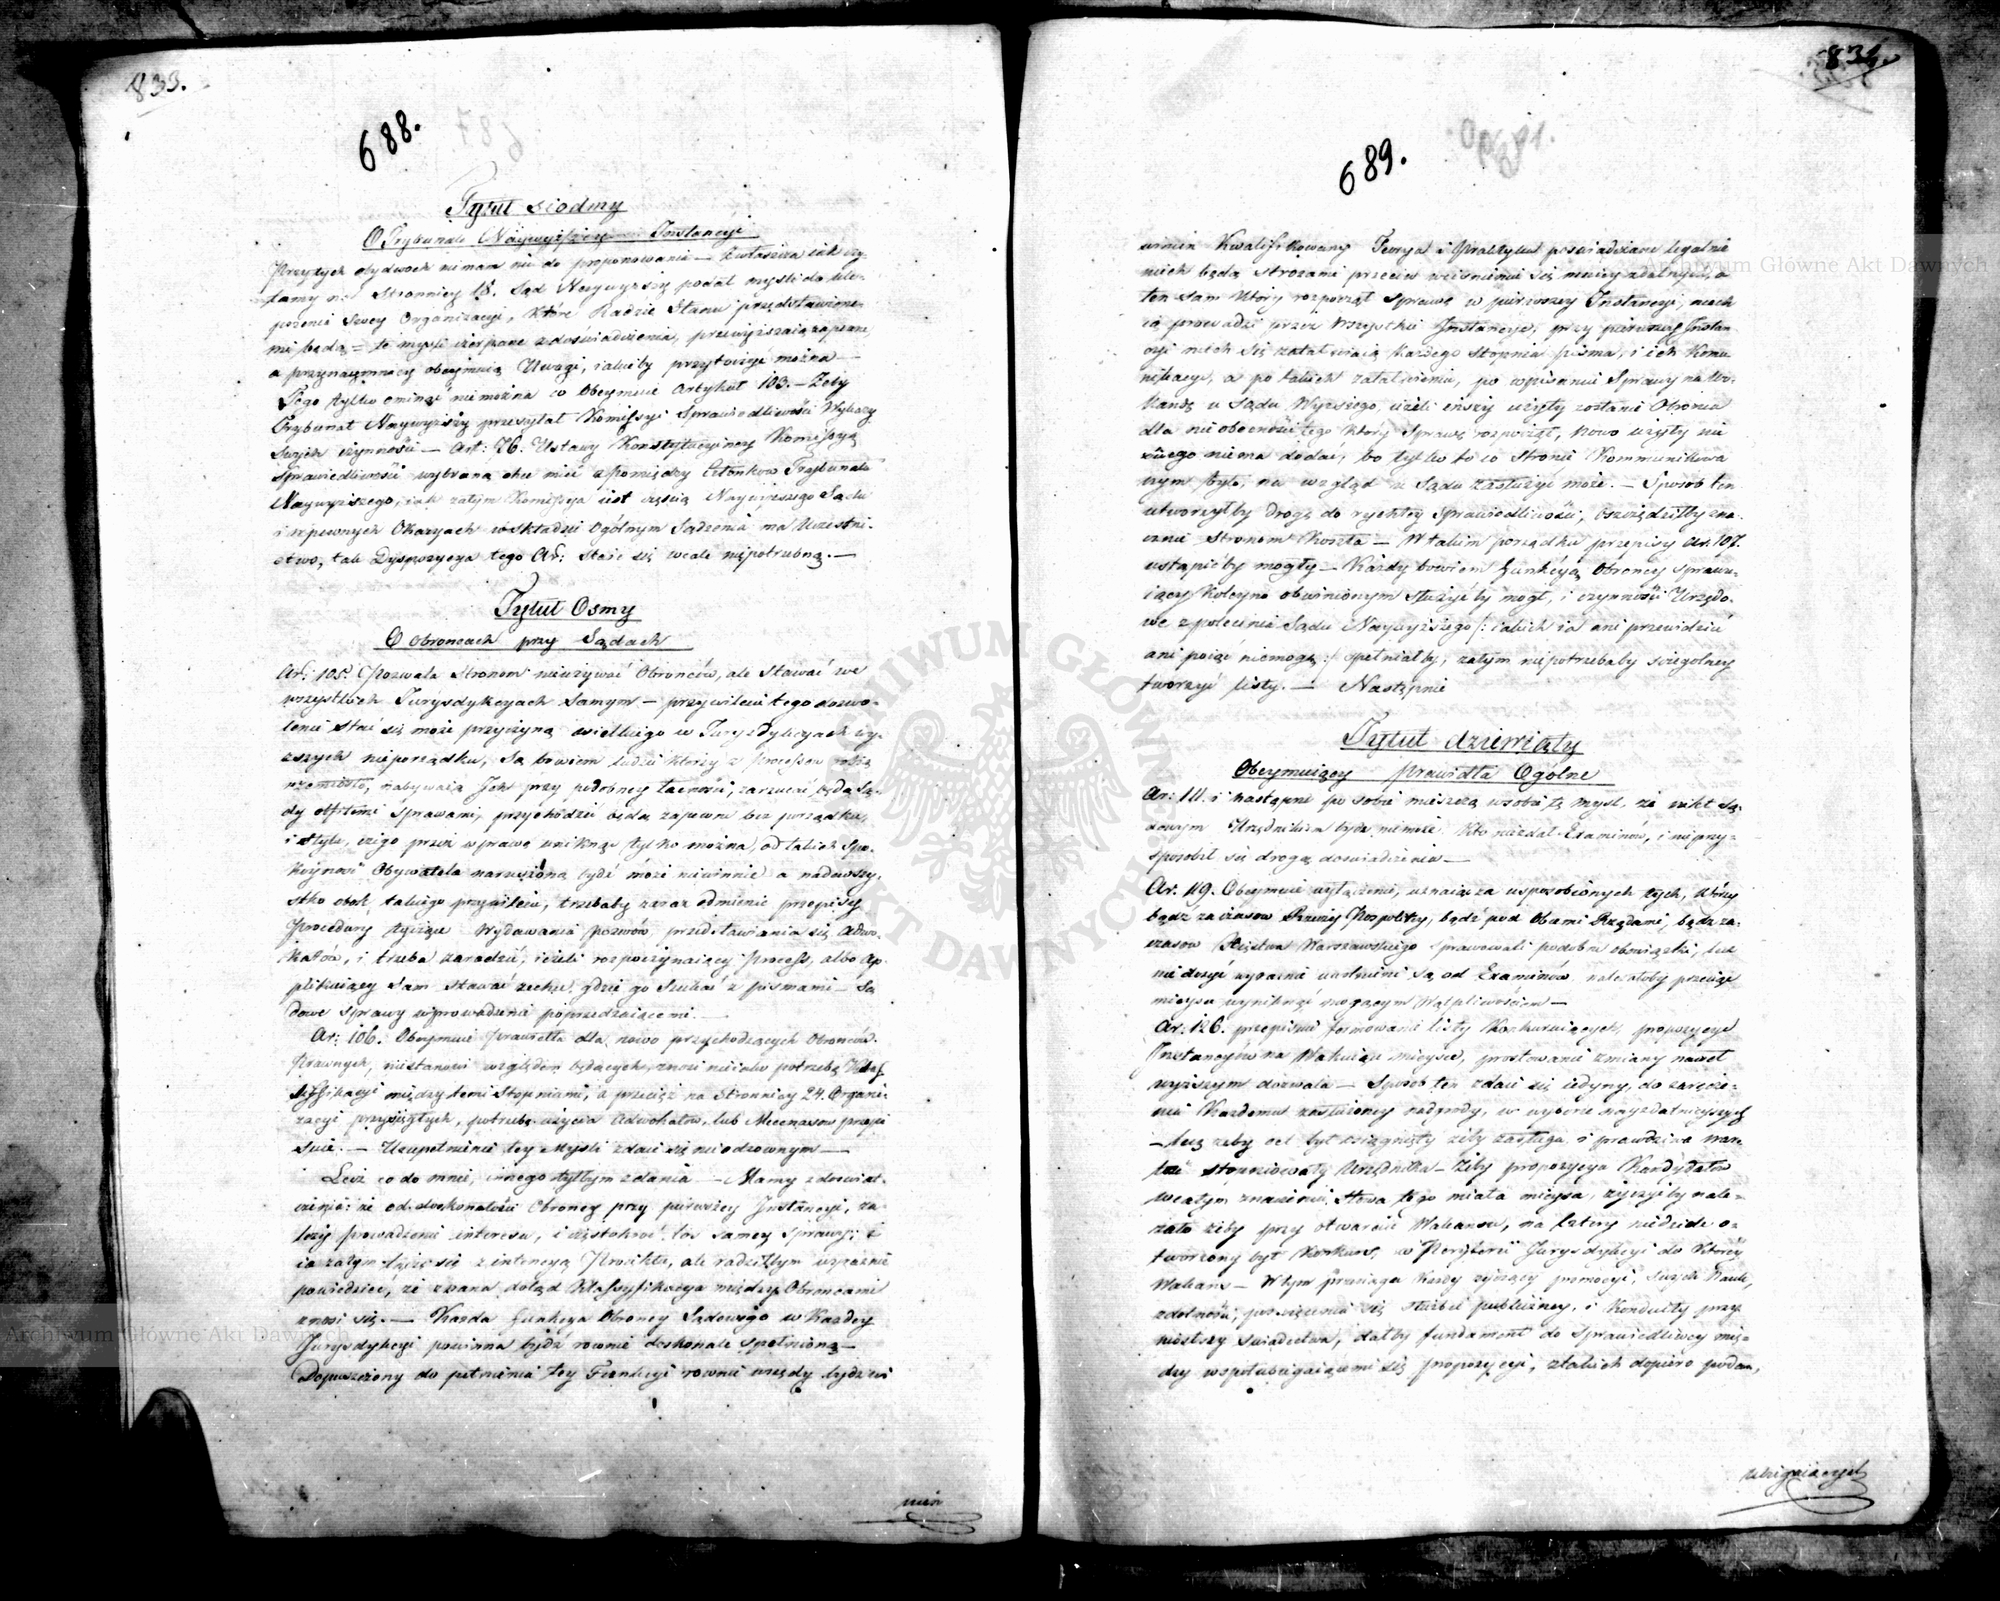 833.
688.
Tytuł siodmy
O Trybunale Naywyższey Instancyi
Przy tych obydwoch nie mam nic do proponowania — Zwłaszcza iak czy-
tamy na Stronnicy 18. Sąd Naywyższy podał myśli do ulo-
żenia swey Organizacyi, które Radzie Stanu przedstawione-
mi będą = te myśli czerpane z doświadczenia, przewyższaią zapewne,
a przynaymniey obeymuią Uwagi, iakieby przytoczyć można —
Tego tylko ominąć nie można co Obeymuie Artykuł 103. — Żeby
Trybunał Naywyższy przesyłał Kommissyi Sprawiedliwości Wykazy
swych czynności — Art: 76. Ustawy Konstytucyiney Kommissyą
Sprawiedliwości wybraną chce mieć z pomiędzy Członków Trybunału
Naywyższego, iak zatym Kommissya iest częścią Naywyższego Sądu
i w pewnych Okazyach w składzie Ogólnym Sądzenia ma Uczestni-
ctwo, tak Dyspozycya tego Ar: staie się wcale niepotrzebną. —
Tytuł Osmy
O Obroncach przy Sądach
Ar: 105. Pozwala Stronom nieużywać Obrońców, ale Stawać we
wszystkich Jurysdykcyach Samym — przywileiu tego dozwo-
lenie stać się może przyczyną wielkiego w Jurysdykcyach wy-
ższych nieporządku, Są bowiem Ludzie którzy z processow robią
rzemiosło, nabywaią Ich przy podobney łacności, zarzucać będą Są-
dy obfitemi Sprawami, przychodzić będą zapewne bez porządku,
i stylu, czego przez wprawę uniknąć tylko można, od takich Spo-
koynosć Obywatela naruszoną bydź może niewinnie a nadewszy-
stko obok takiego przywileiu, trzebaby zaraz odmienić przepisy
Procedury tyczące Wydawania pozwów, przedstawiania się Adwo-
katów, i trzeba zaradzić, ieżeli rozpoczynaiący process, albo ap-
plikuiący sam stawać zechce, gdzie go szukać z pismami — Są-
dowe Sprawy wprowadzenie poprzedzaiącemi. —
Ar: 106. Obeymuie Prawidła dla nowo przychodzących Obrońców
Prawnych, niestanowi względem będących, znosi nieiako potrzebę Klas-
syfikacyi między temi Stopniami, a przecież na Stronnicy 24. Organi-
zacyi przysięgłych, potrzebę użycia Adwokatów, lub Mecenasow przepi
suie. — Uzupełnienie tey Myśli zdaie się nieodzownym —
Lecz co do mnie, innego byłbym zdania — Mamy z doświad-
czenia: że od doskonałości Obroncy przy pierwszey Instancyi, za-
leży prowadzenie interesu, i częstokroć los samey Sprawy; i
ia zatym łączę się z intencyą Proiektu, ale radziłbym wyraźnie
powiedzieć, że znana dotąd Klassyfikacya między Obroncami
znosi się. — Każda funkcya Obroncy Sądowego w Każdey
Jurysdykcyi powinna bydź równie doskonale spełnioną —
Dopuszczony do pełnienia tey Funkcyi równie wszędy bydź wi
nien
834.
689.
winien Kwalifikowany Teoryą i Praktyką poświadczone legalnie
niech będą Strożami przeciw wciśnieniu się mniey zdatnych a
ten sam który rozpoczął Sprawę w pierwszey Instancyi, niech
ią prowadzi przez Wszystkie Instancye, przy pierwszey Instan
cyi niech się załatwiaią każdego stopnia pisma, i ich Komu
nikacye, a po takich załatwieniu, po wpisaniu Sprawy na Wo-
kandę u Sądu Wyższego, ieżeli inszy użyty zostanie Obronca
dla nieobecności tego który Sprawę rozpoczął, Nowo użyty nic
swego niema dodać, bo tylko to co Stronie Kommunikowa
nym było, na wzgląd u Sądu zasłużyć może. — Sposób ten
utworzyłby drogę do rychłey Sprawiedliwości, oszczędziłby zna-
cznie Stronom Koszta — W takim porządku przepisy Ar: 107.
ustąpićby mogły — Każdy bowiem funkcyą Obroncy sprawu-
iący Koleyno obwinionym służyćby mogł, i czynności Urzędo-
we z polecenia Sądu Naywyższego /: iakich ia ani przewidzieć
ani poiąć niemogę :/ spełniałby, zatym niepotrzebaby szczegolney
tworzyć listy. — Następnie
Tytuł dziewiąty
Obeymuiący Prawidła Ogólne
Ar: 111. i następne po sobie mieszczą w sobie tę myśl, że nikt Są-
dowym Urzędnikiem bydź niemoże Kto niezdał Examinów, i nieprzy-
sposobił się drogą doświadczenia —
Ar. 119. Obeymuie wyłączenie, uznaiąc za usposobionych tych, którzy
bądz za czasow Rzeczy Pospolitey, bądź pod Obcemi Rządami, bądz za
czasow Księstwa Warszawskiego sprawowali podobne obowiązki, lecz
nie dosyć wyraźnie uwolnieni są od Examinów należałoby przeciąć
mieysce wyniknąć mogącym Wątpliwościom —
Ar: 126. przepisuie formowanie listy Konkuruiących, propozycye
Instancyów na Wakuiące mieysce, prostowanie zmiany nawet
wyższym dozwala — Sposób ten zdaie się iedyny, do zaręcze-
nia Każdemu zasłużoney nadgrody, w wyborze nayzdatnieyszych
— lecz żeby cel był osiągnięty żeby zasługa i prawdziwa war-
tość stopniowały Urzędnika — Żeby propozycya Kandydatów
w całym znaczeniu Słowa tego miała mieysce, życzyćby nale-
żało żeby przy otwarciu Wakansu, na cztery niedziele o-
tworzony był Konkurs, w Perýferii Jurysdykcyi do Którey
Wakans — W tym przeciągu Każdy życzący promocyi, swych Nauk,
zdolności, poświęcenia się służbie publiczney, i Konduity przy-
niosłszy świadectwa, dałby fundament do Sprawiedliwey mię-
dzy wspołubiegaiącemi się propozycyi, z takich dopiero podan,
ubiegaiących
Archiwum Główne Akt Dawnych
Archiwum Główne Akt Dawnych
ARCHIWUM GŁÓWNE AKT DAWNYCH